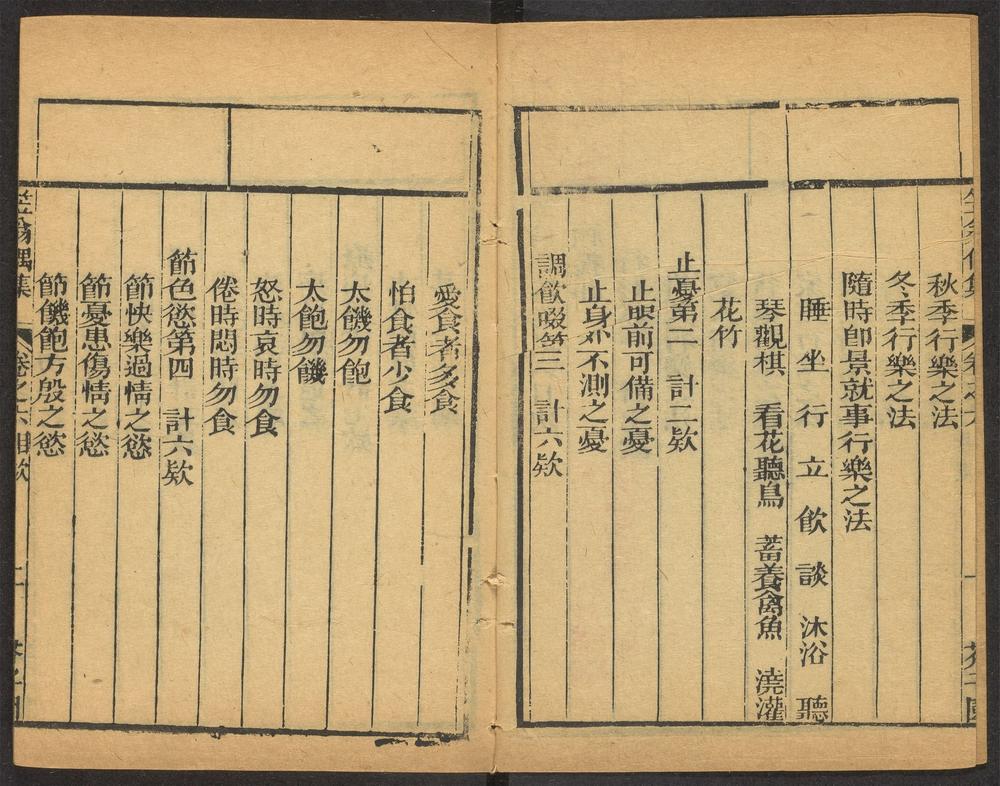 秋季行樂之法
冬季行樂之法
隨時卽景就事行樂之法
睡　坐　行　立　飲　談　沐浴　聽
琴觀棋　看花聽鳥　蓄養禽魚　澆灌
花竹
止憂第二　計二欵
止眼前可備之憂
止身外不測之憂
調飲啜第三　計六欵
愛食者多食
怕食者少食
太饑勿飽
太飽勿饑
怒時哀時勿食
倦時悶時勿食
節色慾第四　計六欵
節快樂過情之慾
節憂患傷情之慾
節饑飽方殷之慾
笠翁偶集　卷之六目次　二